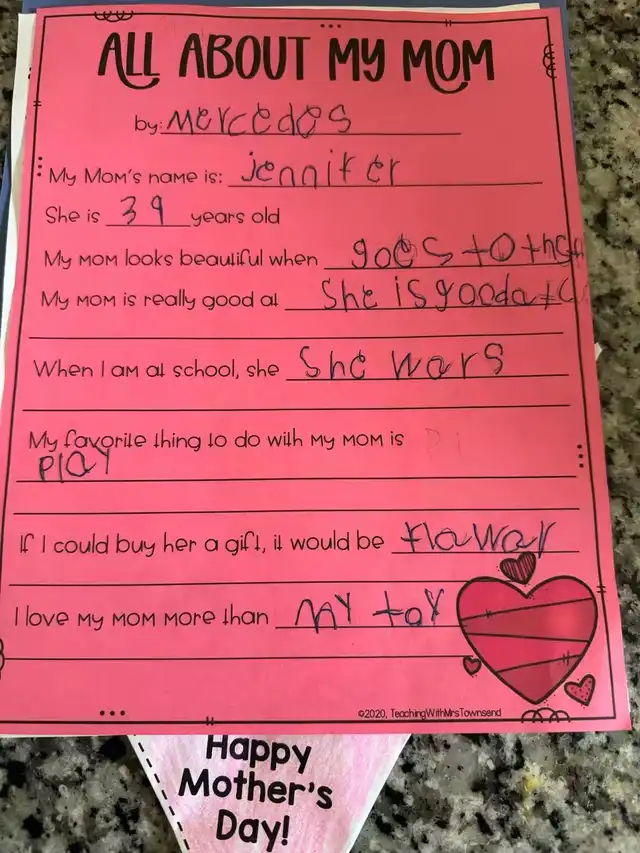 ALL ABOUT MY MOM
by: Mercedes
My Mom's name is: jennifer
She is 39 years old
My mom looks beautiful when goes to
My mom is really good at She is good at
When I am at school, she She wars
My favorite thing to do with my mom is
play
If I could buy her a gift, it would be flawar
I love my mom more than my toy
©2020, TeachingWithMrsTownsend
Happy
Mother's
Day!